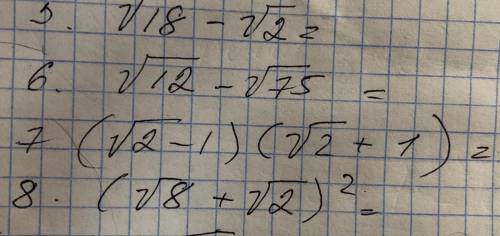 5. √18 - √2 =
6. √12 - √75 =
7 (√2 - 1) (√2 + 1) =
8. (√8 + √2)² =